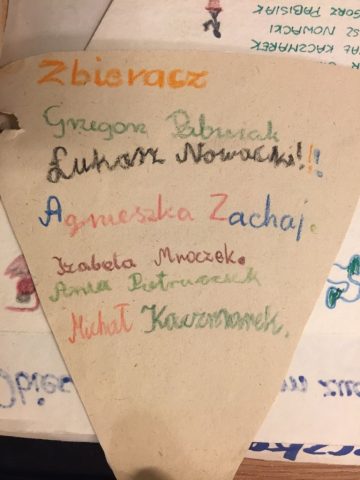 AŁ KACZMAREK
SZ NOWACKI
GORZ PABISIAK
Zbieracz
Grzegorz Pabisiak
Łukasz Nowacki!!!
Agnieszka Zachaj.
Izabela Mroczek.
Ania Pietruszek
Michał Kaczmarek.